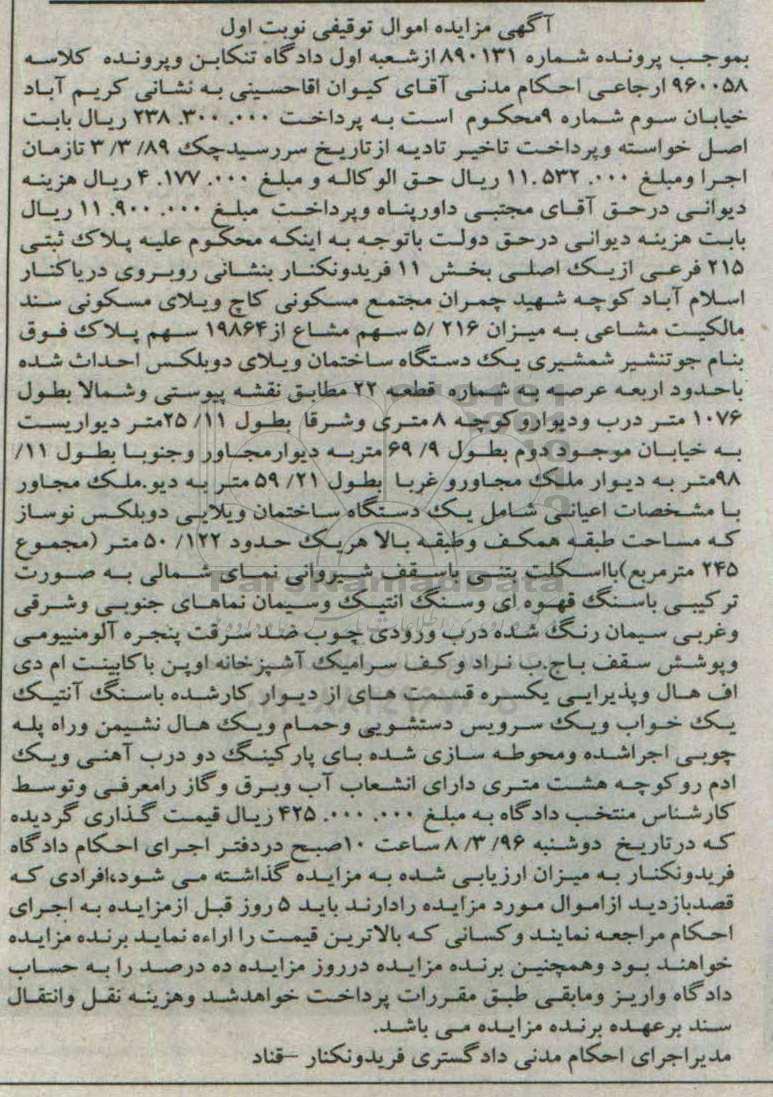 آگهی مزایده اموال توقیفی نوبت اول
بموجب پرونده شماره ۸۹۰۱۳۱ ازشعبه اول دادگاه تنکابن وپرونده کلاسه
۹۶۰۰۵۸ ارجاعی احکام مدنی آقای کیوان اقاحسینی به نشانی کریم آباد
خیابان سوم شماره ۹محکوم است به پرداخت ۰۰۰. ۳۰۰. ۲۳۸ ریال بابت
اصل خواسته وپرداخت تاخیر تادیه ازتاریخ سررسیدچک ۸۹/ ۳/ ۳ تازمان
اجرا ومبلغ ۰۰۰. ۵۳۲. ۱۱ ریال حق الوکاله و مبلغ ۰۰۰. ۱۷۷. ۴ ریال هزینه
دیوانی درحق آقای مجتبی داورپناه وپرداخت مبلغ ۰۰۰. ۹۰۰. ۱۱ ریال
بابت هزینه دیوانی درحق دولت باتوجه به اینکه محکوم علیه پلاک ثبتی
۲۱۵ فرعی ازیک اصلی بخش ۱۱ فریدونکنار بنشانی روبروی دریاکنار
اسلام آباد کوچه شهید چمران مجتمع مسکونی کاج ویلای مسکونی سند
مالکیت مشاعی به میزان ۲۱۶ /۵ سهم مشاع از۱۹۸۶۴ سهم پلاک فوق
بنام جوتنشیر شمشیری یک دستگاه ساختمان ویلای دوبلکس احداث شده
باحدود اربعه عرصه به شماره قطعه ۲۲ مطابق نقشه پیوستی وشمالا بطول
۱۰۷۶ متر درب ودیوارو کوچه ۸ متری وشرقا بطول ۱۱/ ۲۵متر دیواریست
به خیابان موجود دوم بطول ۹/ ۶۹ متربه دیوارمجاور وجنوبا بطول ۱۱/
۹۸متر به دیوار ملک مجاورو غربا بطول ۲۱/ ۵۹ متر به دیو.ملک مجاور
با مشخصات اعیانی شامل یک دستگاه ساختمان ویلایی دوبلکس نوساز
که مساحت طبقه همکف وطبقه بالا هریک حدود ۱۲۲/ ۵۰ متر (مجموع
۲۴۵ مترمربع)بااسکلت بتنی باسقف شیروانی نمای شمالی به صورت
ترکیبی باسنگ قهوه ای وسنگ انتیک وسیمان نماهای جنوبی وشرقی
وغربی سیمان رنگ شده درب ورودی چوب ضد سرقت پنجره آلومنییومی
وپوشش سقف باج.ب نراد وکف سرامیک آشپزخانه اوپن باکابینت ام دی
اف هال وپذیرایی یکسره قسمت های از دیوار کارشده باسنگ آنتیک
یک خواب ویک سرویس دستشویی وحمام ویک هال نشیمن وراه پله
چوبی اجراشده ومحوطه سازی شده بای پارکینگ دو درب آهنی ویک
ادم روکوچه هشت متری دارای انشعاب آب وبرق وگاز رامعرفی وتوسط
کارشناس منتخب دادگاه به مبلغ ۰۰۰. ۰۰۰. ۴۲۵ ریال قیمت گذاری گردیده
که درتاریخ دوشنبه ۹۶/ ۳/ ۸ ساعت ۱۰صبح دردفتر اجرای احکام دادگاه
فریدونکنار به میزان ارزیابی شده به مزایده گذاشته می شود،افرادی که
قصدبازدید ازاموال مورد مزایده رادارند باید ۵ روز قبل ازمزایده به اجرای
احکام مراجعه نمایند وکسانی که بالاترین قیمت را اراءه نماید برنده مزایده
خواهند بود وهمچنین برنده مزایده درروز مزایده ده درصد را به حساب
دادگاه واریز ومابقی طبق مقررات پرداخت خواهدشد وهزینه نقل وانتقال
سند برعهده برنده مزایده می باشد.
مدیراجرای احکام مدنی دادگستری فریدونکنار –قناد